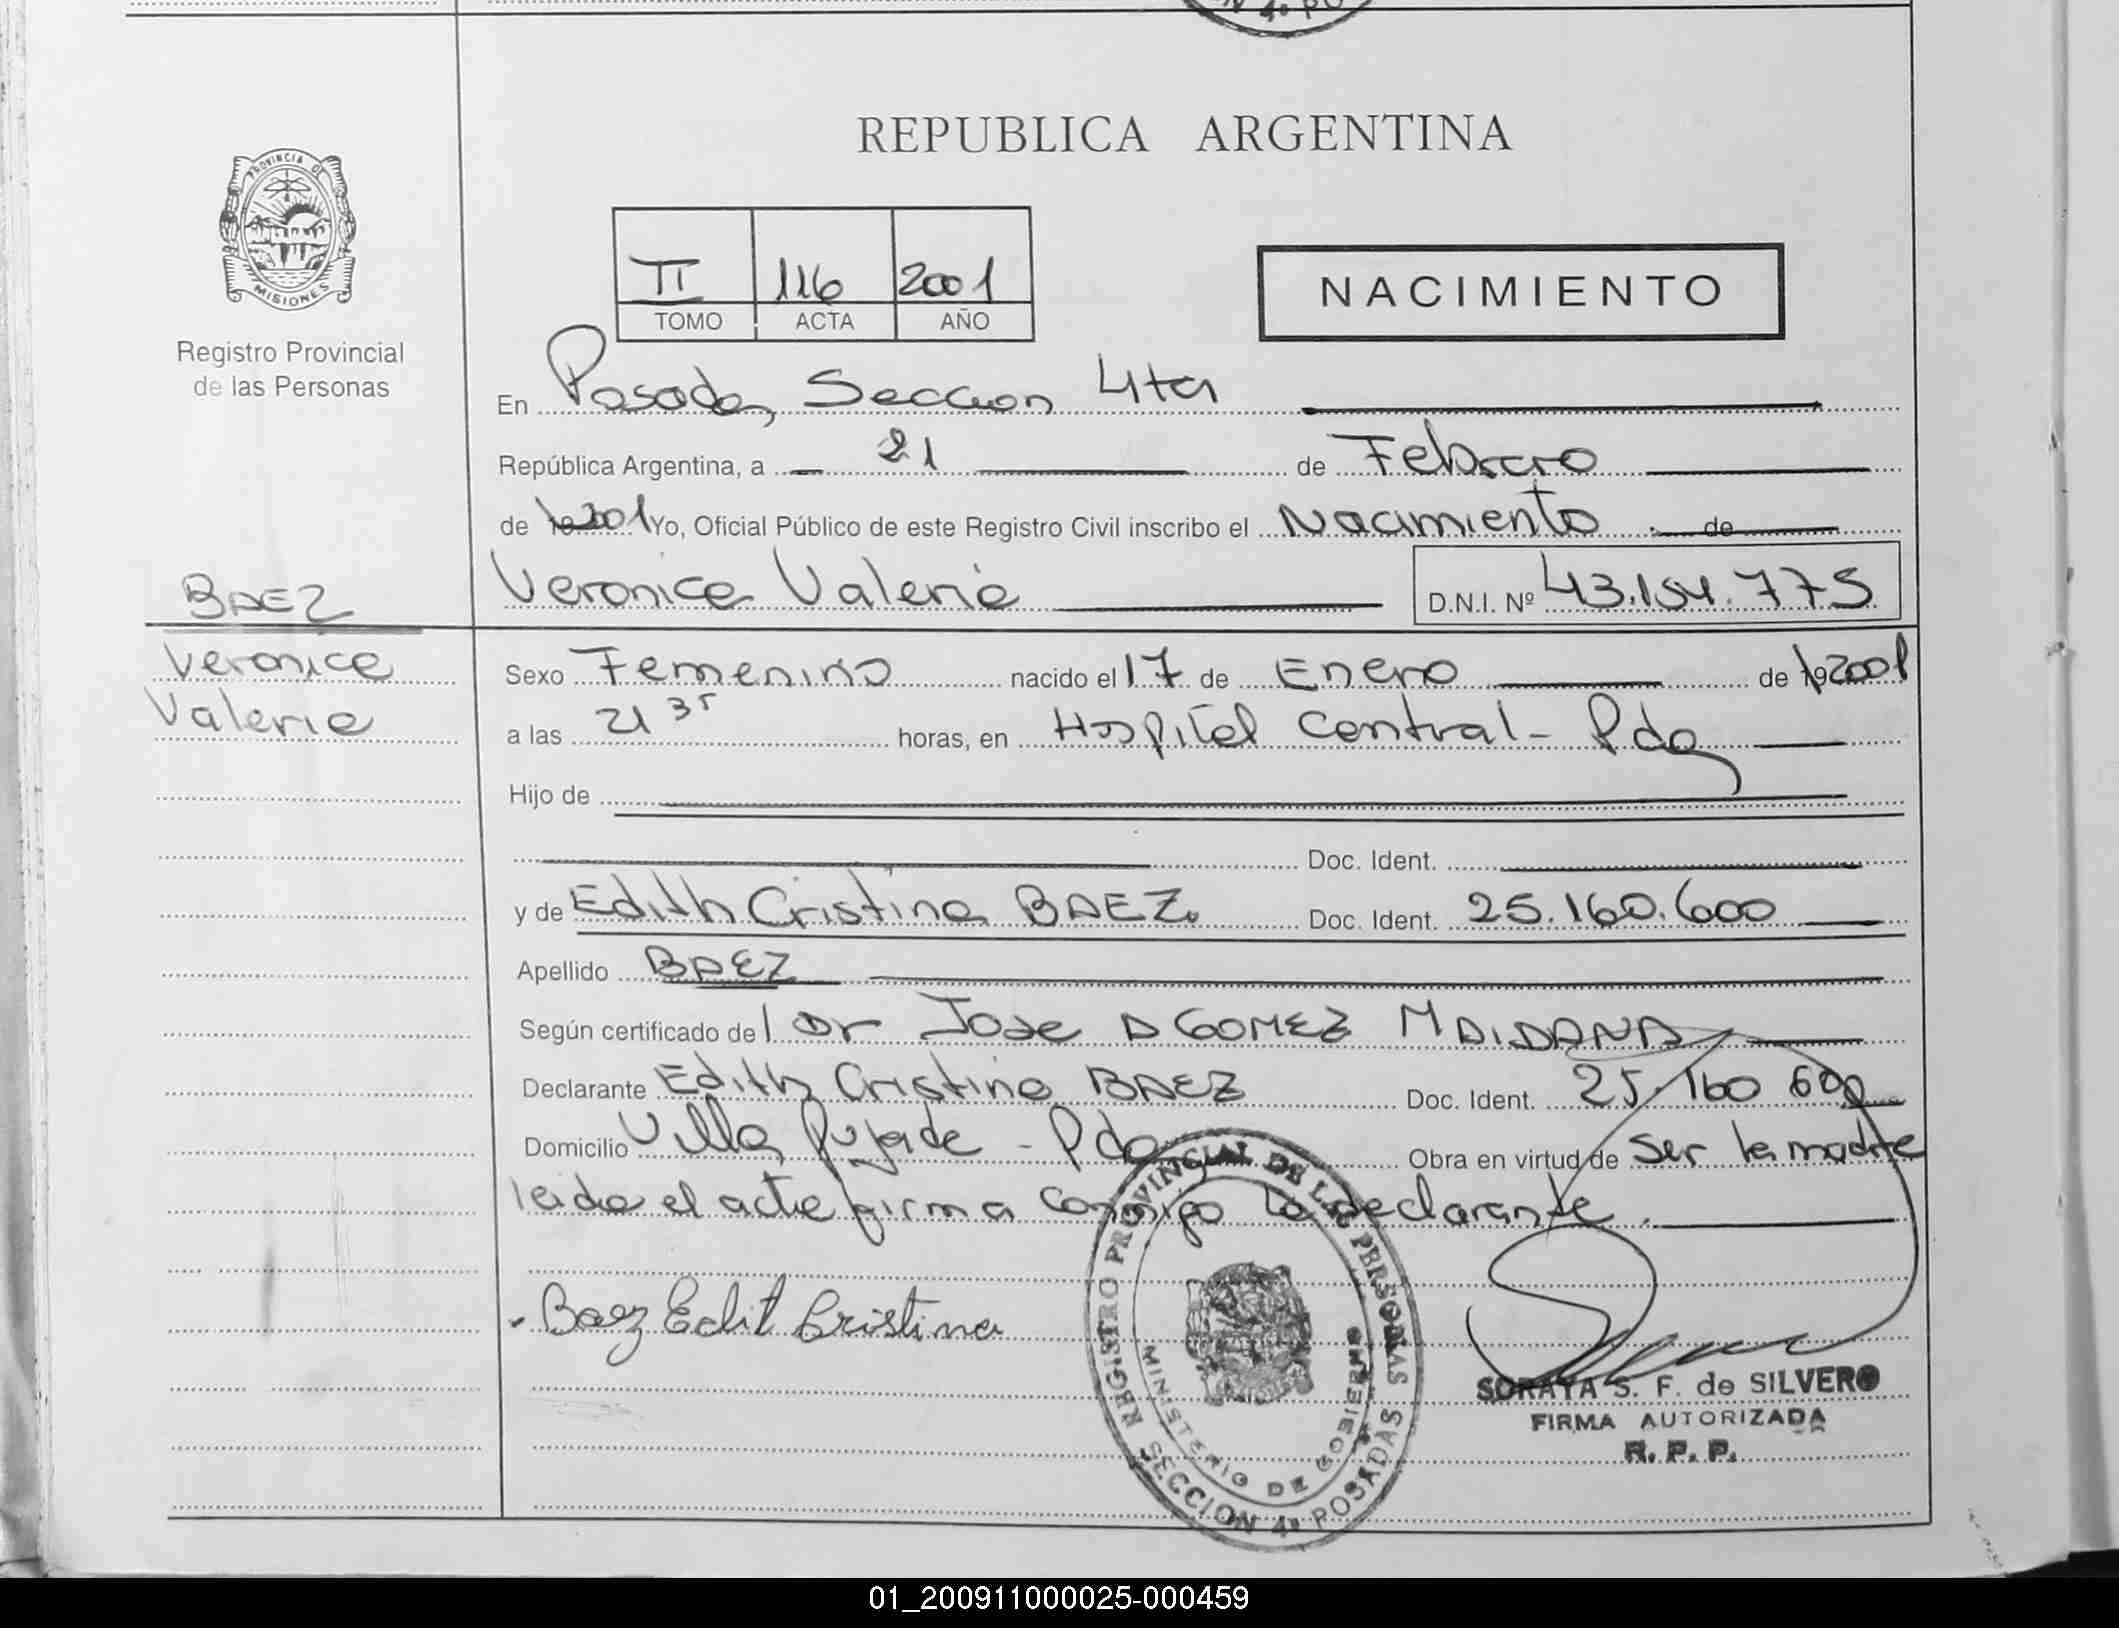 N 4º PO
REPUBLICA ARGENTINA
PROVINCIA DE
MISIONES
Registro Provincial
de las Personas
II 116 2001
TOMO ACTA AÑO
NACIMIENTO
En Posadas, Seccion 4ta
República Argentina, a 21 de Febrero
de 2001 Yo, Oficial Público de este Registro Civil inscribo el Nacimiento de
Veronica Valeria D.N.I. Nº 43.154.775
BAEZ
Veronica
Valeria
Sexo Femenino nacido el 17 de Enero de 2001
a las 21 35 horas, en Hospital Central - Pdas
Hijo de
Doc. Ident.
y de Edith Cristina BAEZ. Doc. Ident. 25.160.600
Apellido BAEZ
Según certificado del Dr Jose A GOMEZ MAIDANA
Declarante Edith Cristina BAEZ Doc. Ident. 25.160 600
Domicilio Villa Pujade - Pdas Obra en virtud de ser la madre
leida el acta firma conmigo la declarante.
Baez Edit Cristina
REGISTRO PROVINCIAL DE LAS PERSONAS
MINISTERIO DE GOBIERNO
SECCION 4º POSADAS
SORAYA S. F. de SILVERO
FIRMA AUTORIZADA
R. P. P.
01_200911000025-000459